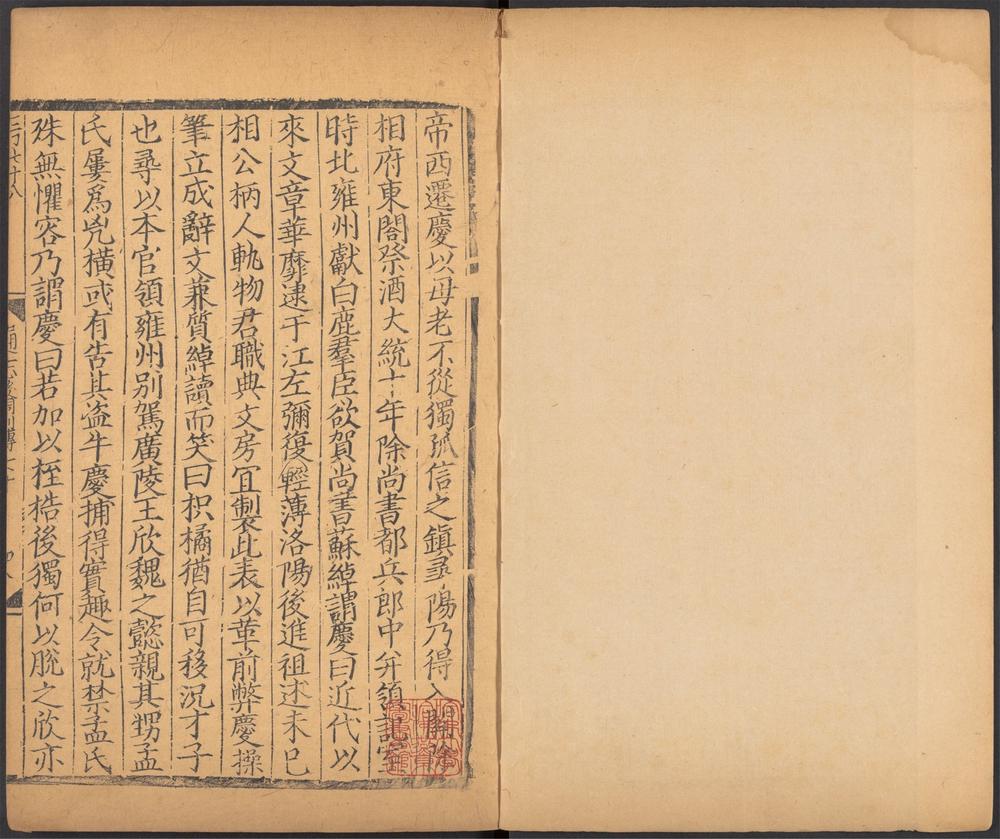 帝西遷慶以母老不從獨孤信之鎮尋陽乃得入關除
相府東閤祭酒大統十年除尚書都兵郎中并領記室
時北雍州獻白鹿羣臣欲賀尚書蘇綽謂慶曰近代以
來文章華靡逮于江左彌復輕薄洛陽後進祖述未已
相公柄人軌物君職典文房宜製此表以革前弊慶操
筆立成辭文兼質綽讀而笑曰枳橘猶自可移況才子
也尋以本官領雍州別駕廣陵王欣魏之懿親其甥孟
氏屢爲兇橫或有告其盗牛慶捕得實趣令就禁孟氏
殊無懼容乃謂慶曰若加以桎梏後獨何以脫之欣亦